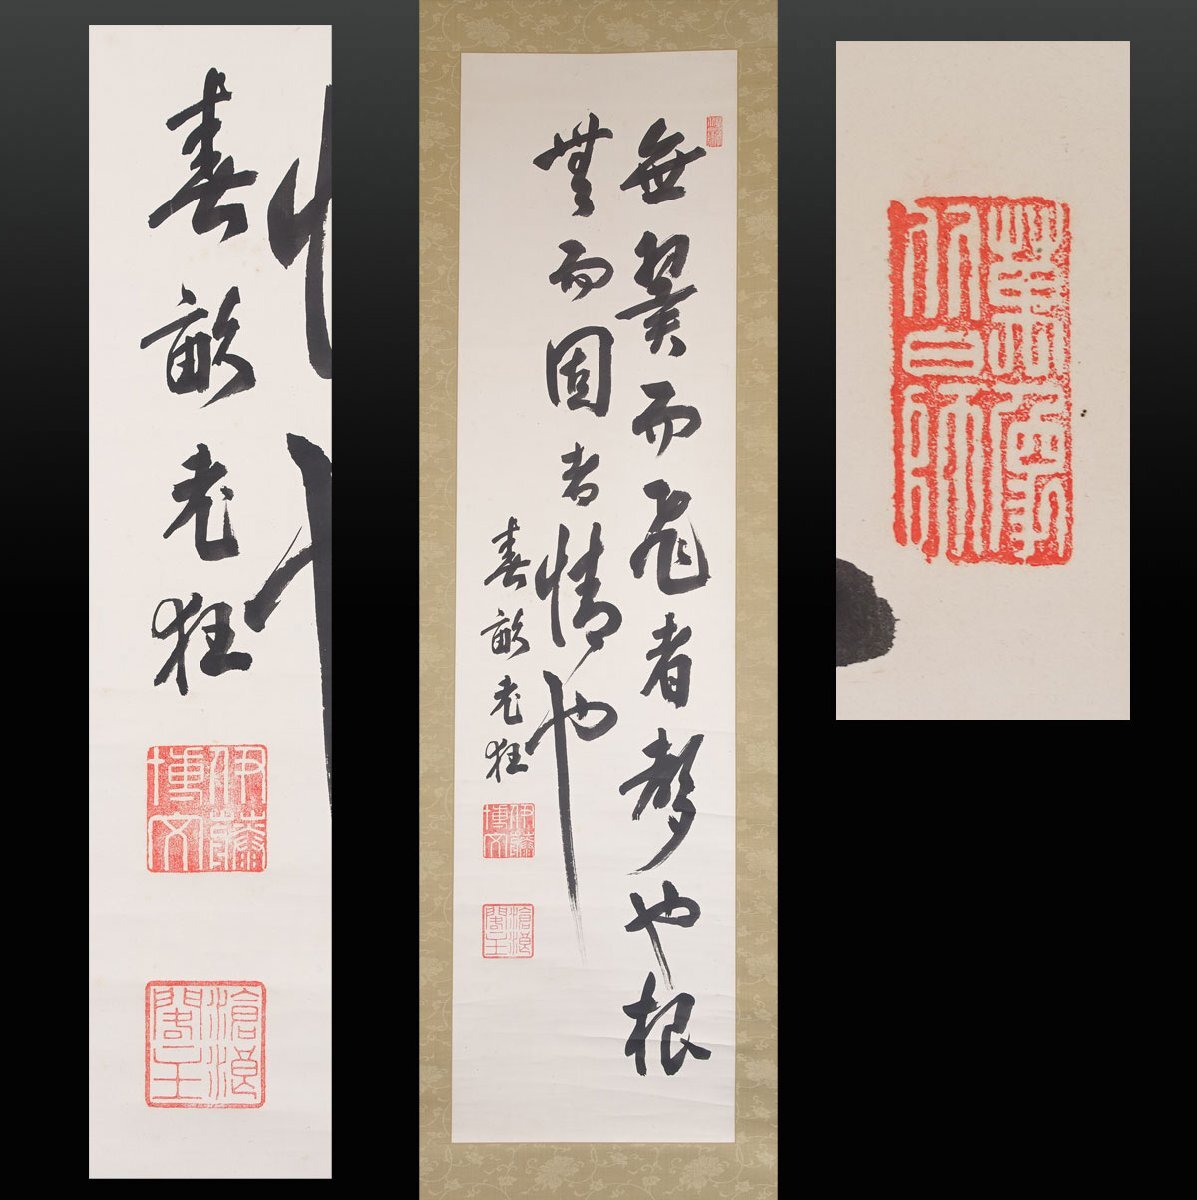 春畝老狂
伊藤博文
滄浪閣主
無翼而飛者聲也根
無而固者情也
春畝老狂
伊藤博文
滄浪閣主